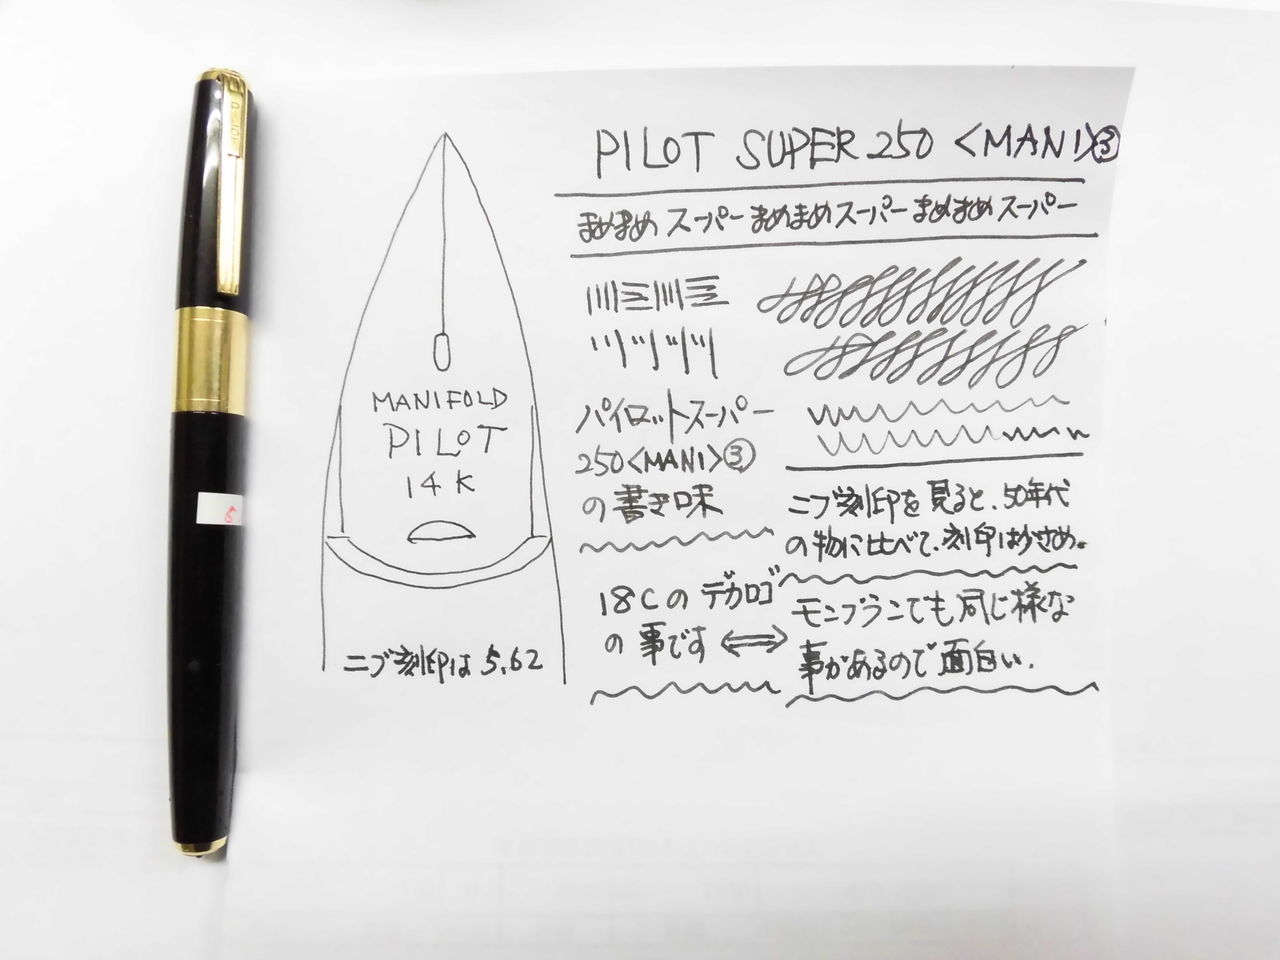 PILOT SUPER 250 <MANI>③
まめまめ スーパー まめまめ スーパー まめまめ スーパー
MANIFOLD
PILOT
14K
ニブ刻印は 5.62
パイロットスーパー
250<MANI>③
の書き味
18Cの デカロゴ
の事です ⇔
ニブ刻印を見ると、50年代
の物に比べて、刻印は小さめ。
モンブランでも同じ様な
事があるので面白い.
PILOT